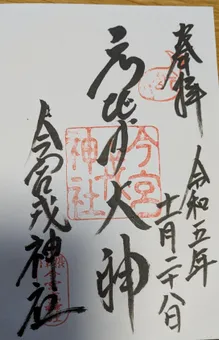 奉拝
令和五年
十一月二十八日
ゑびす大神
今宮戎神社
今宮
戎
神社